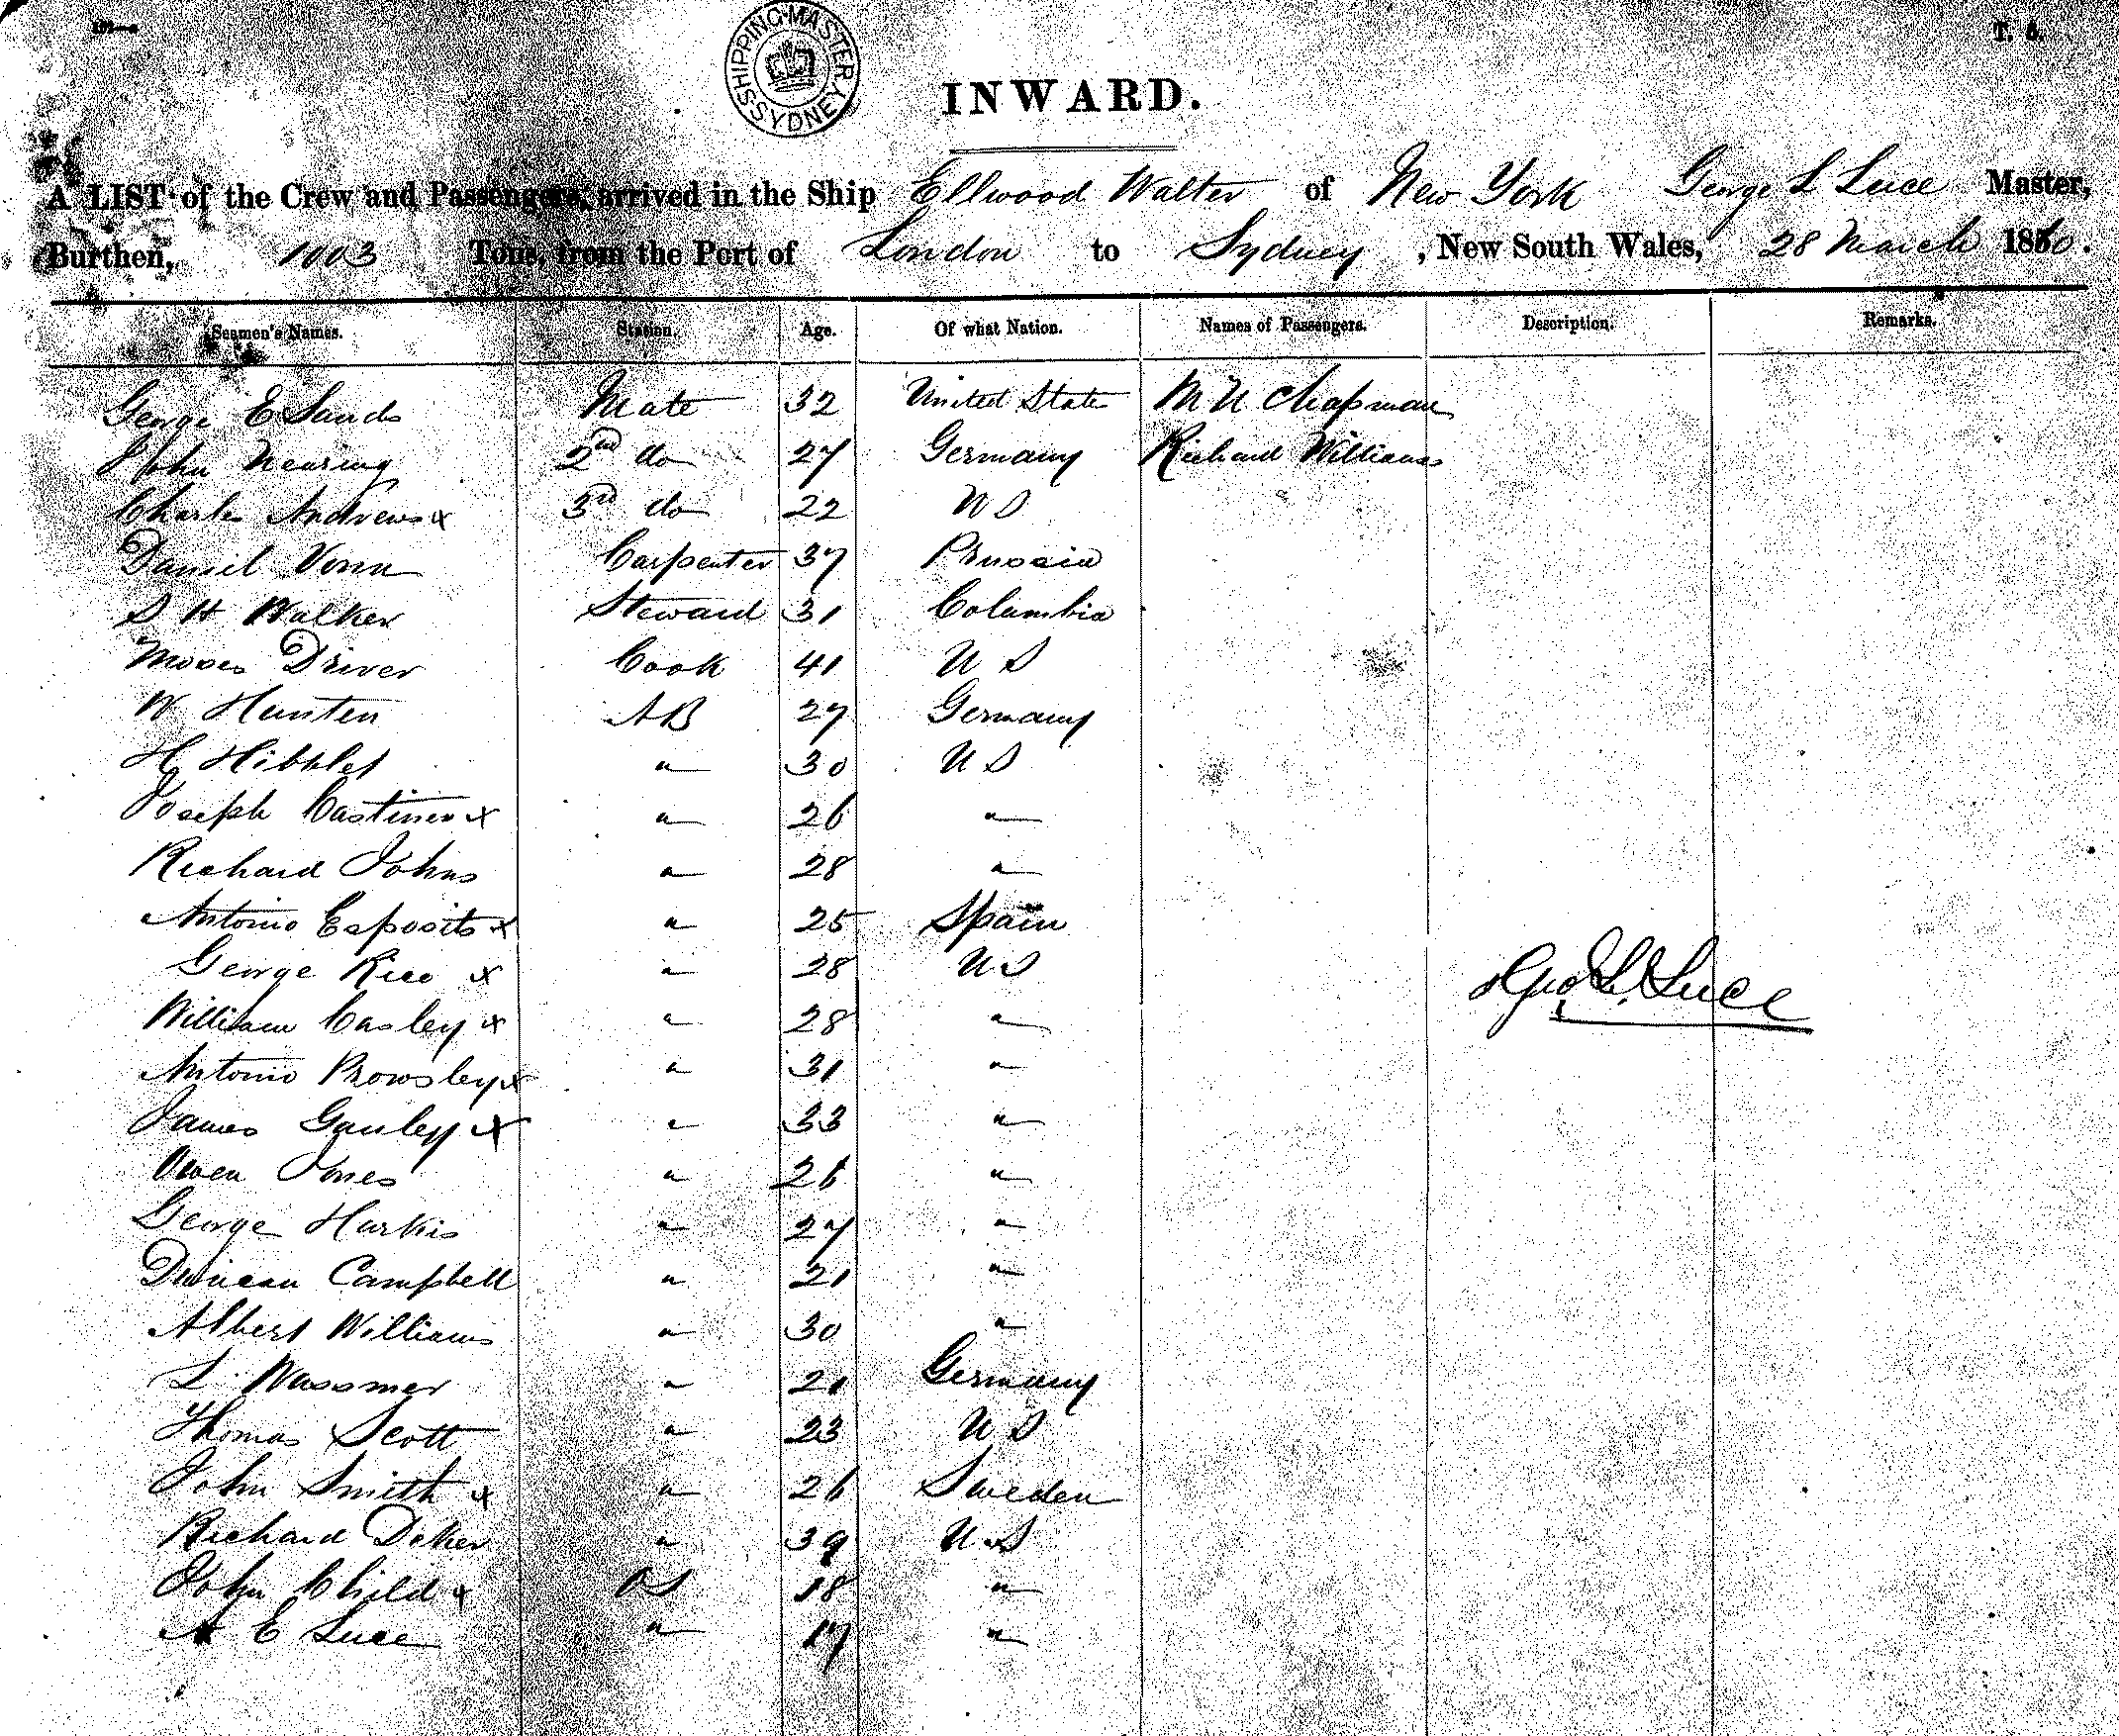 T. 5.
SHIPPING MASTER SYDNEY
INWARD.
A LIST of the Crew and Passengers, arrived in the Ship Ellwood Walter of New York George L Luce Master,
Burthen, 1003 Tons, from the Port of London to Sydney, New South Wales, 28 March 1860.
Seamen's Names. Station. Age. Of what Nation. Names of Passengers. Description. Remarks.
George E Sands Mate 32 United States M N Chapman
John Nearing 2nd do 27 Germany Richard Williams
Charles Andrews x 3rd do 22 U S
Daniel Vorin Carpenter 37 Prussia
S H Walker Steward 31 Columbia
Moses Driver Cook 41 U S
W Hunten AB 27 Germany
H Hibblet " 30 U S
Joseph Castiner x " 26 "
Richard Johns " 28 "
Antonio Esposito x " 25 Spain
George Rice x " 28 U S
Geo L. Luce
William Casley x " 28 "
Antonio Prowsley x " 31 "
James Ganley x " 33 "
Owen Jones " 26 "
George Harkis " 27 "
Duncan Campbell " 21 "
Albert Williams " 30 "
L Wassmer " 21 Germany
Thomas Scott " 23 U S
John Smith x " 26 Sweden
Richard Deker " 39 U S
John Child x OS 18 "
A E Luce " 17 "